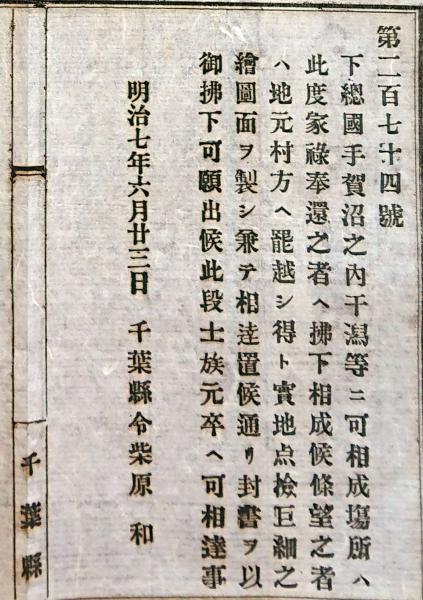 第二百七十四號
下總國手賀沼之內干潟等ニ可相成塲所ハ
此度家祿奉還之者ヘ拂下相成候條望之者
ハ地元村方ヘ罷越シ得ト實地点檢巨細之
繪圖面ヲ製シ兼テ相達置候通リ封書ヲ以
御拂下可願出候此段士族元卒ヘ可相達事
明治七年六月廿三日 千葉縣令柴原 和
千葉縣